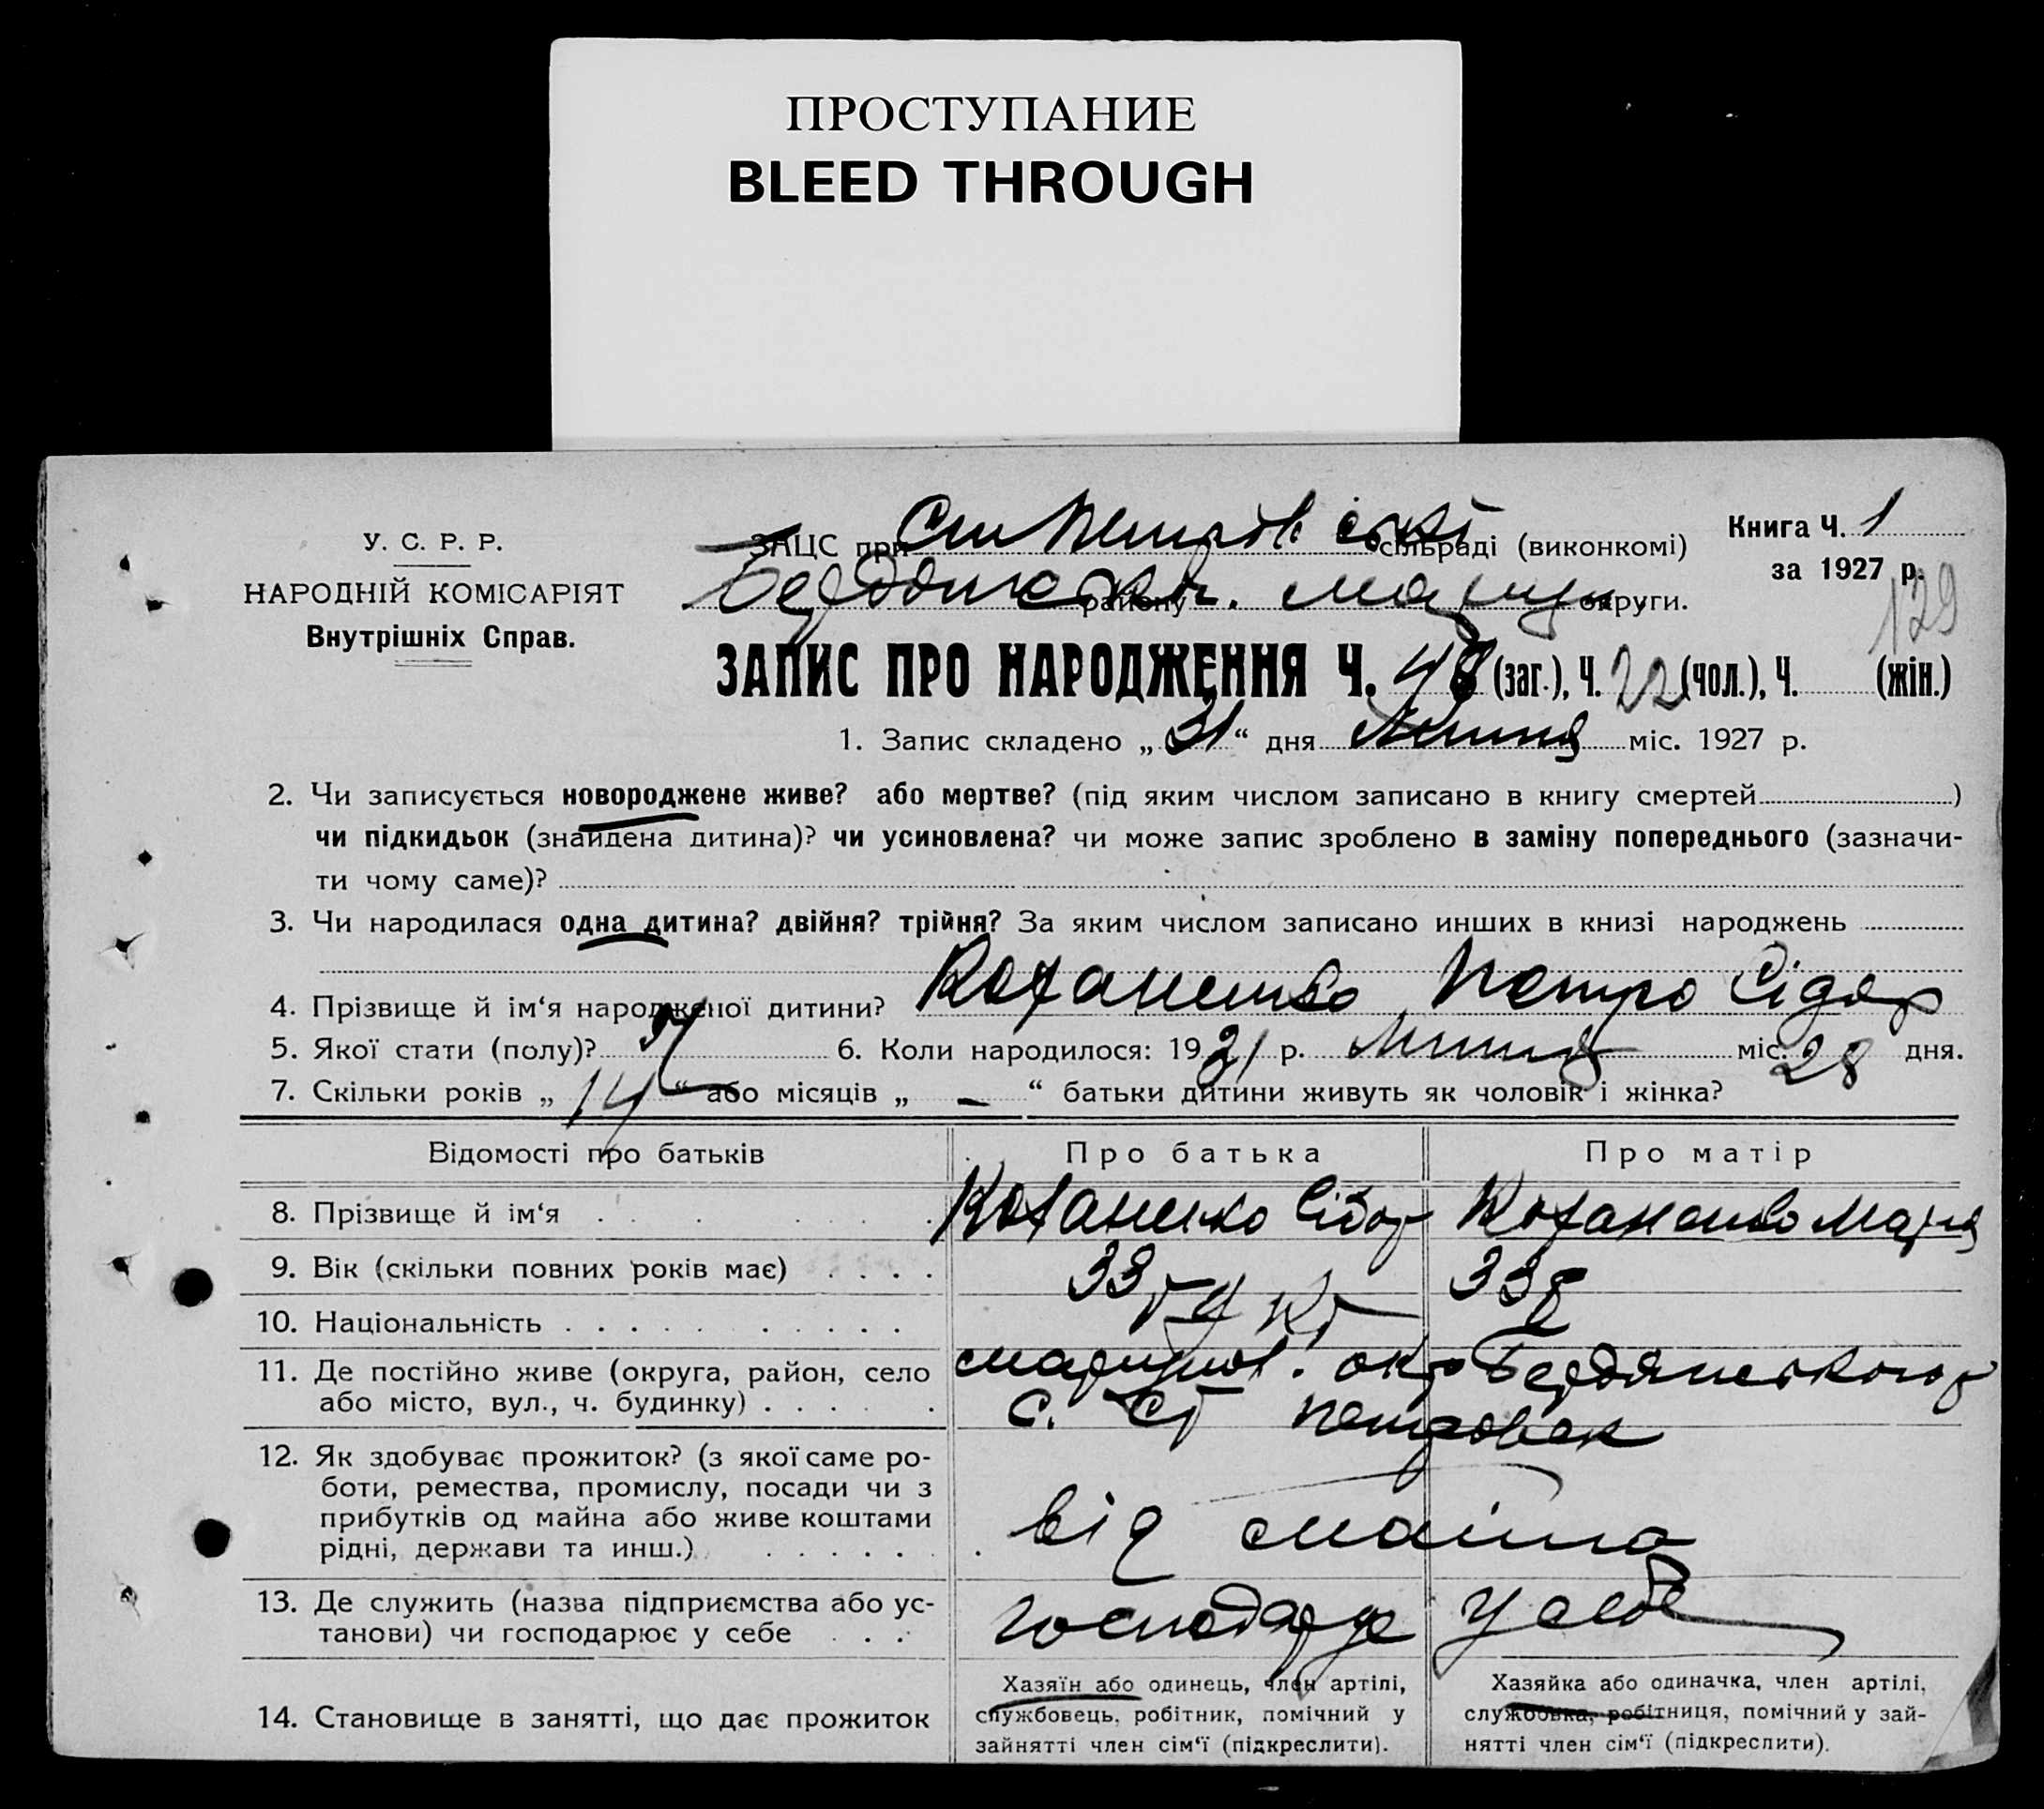 ПРОСТУПАНИЕ
BLEED THROUGH
У. С. Р. Р.
НАРОДНІЙ КОМІСАРІЯТ
Внутрішніх Справ.
ЗАЦС при сільраді (виконкомі)
району округи.
Книга Ч. 1
за 1927 р.
129
ЗАПИС ПРО НАРОДЖЕННЯ Ч. 48 (заг.), Ч. 22 (чол.), Ч. (жін.)
1. Запис складено „ 31 “ дня Липня міс. 1927 р.
2. Чи записується новороджене живе? або мертве? (під яким числом записано в книгу смертей )
чи підкидьок (знайдена дитина)? чи усиновлена? чи може запис зроблено в заміну попереднього (зазначи-
ти чому саме)?
3. Чи народилася одна дитина? двійня? трійня? За яким числом записано инших в книзі народжень
4. Прізвище й ім‘я народженої дитини? Коханенко Петро Сідор
5. Якої стати (полу)? Ч 6. Коли народилося: 19 р. Липня міс. 28 дня.
7. Скільки років „ 14 “ або місяців „ — “ батьки дитини живуть як чоловік і жінка?
Відомості про батьків Про батька Про матір
8. Прізвище й ім‘я Коханенко Сідор Коханенко Марія
9. Вік (скільки повних років має) 33 р 33 р
10. Національність Укр
11. Де постійно живе (округа, район, село
або місто, вул., ч. будинку)
маріупол. окр Бердянського р
с. Ст Петровак
12. Як здобуває прожиток? (з якої саме ро-
боти, ремества, промислу, посади чи з
прибутків од майна або живе коштами
рідні, держави та инш.)
від майна
13. Де служить (назва підприємства або ус-
танови) чи господарює у себе
господарює у себе
14. Становище в занятті, що дає прожиток
Хазяїн або одинець, член артілі,
службовець, робітник, помічний у
зайнятті член сім‘ї (підкреслити).
Хазяйка або одиначка, член артілі,
службовка, робітниця, помічний у зай-
нятті член сім‘ї (підкреслити).